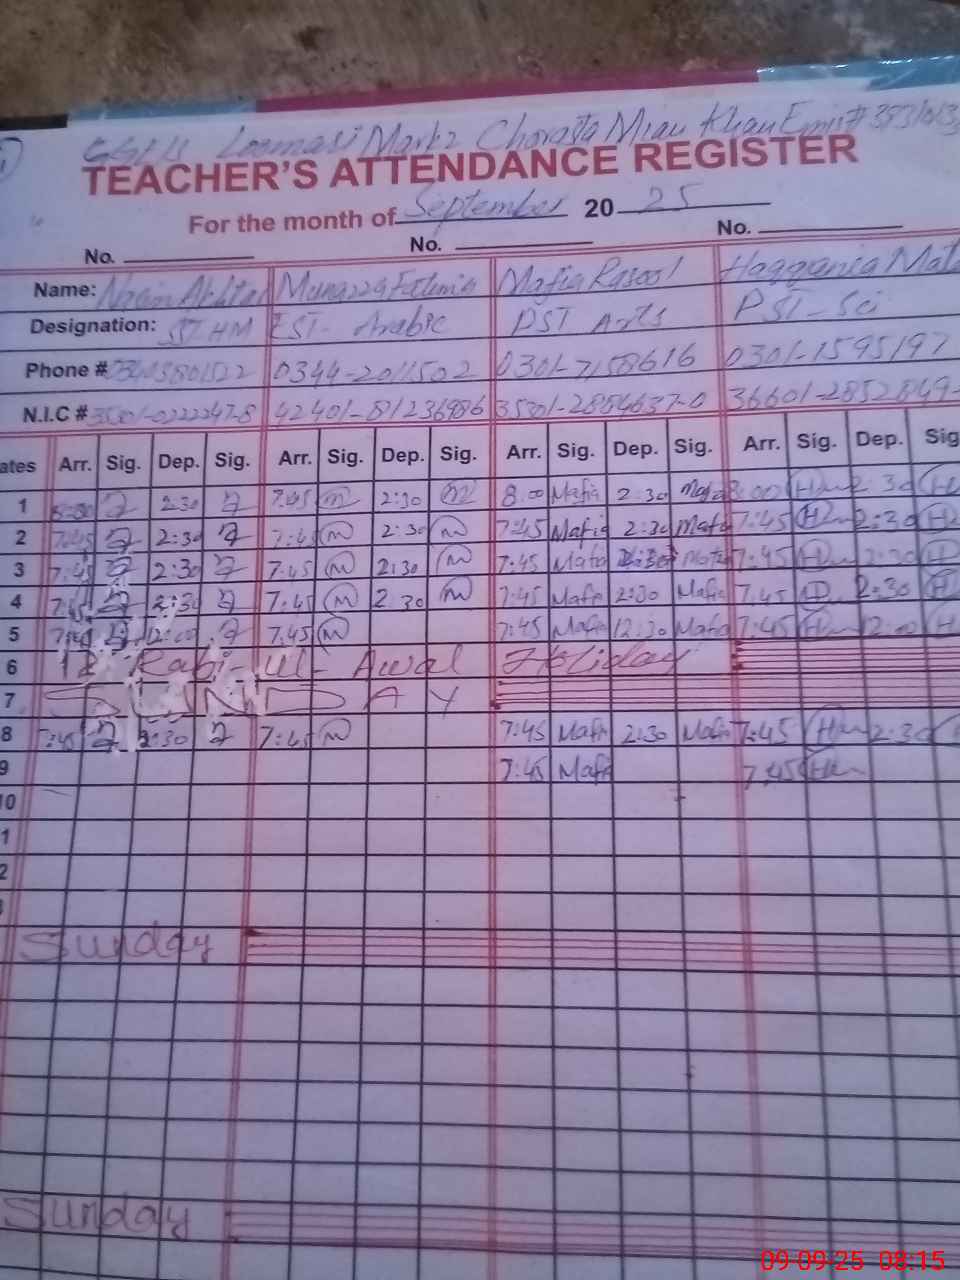 Chorasta Mian Khan Emis#
TEACHER'S ATTENDANCE REGISTER
For the month of September 20 25
No. No. No.
Name: Munazza Fatima Mafia Rasool
Designation: SST HM EST- Arabic PST Arts PST-Sci
Phone # 0344-2011502 0301-7158616 0301-1595197
N.I.C # 42401-81236986 35301-2884637-0 36601-2852849-
ates Arr. Sig. Dep. Sig. Arr. Sig. Dep. Sig. Arr. Sig. Dep. Sig. Arr. Sig. Dep. Sig
1 8:00 2:30 7:45 m 2:30 m 8:00 Mafia 2:30 Mafia 8:00 2:30
2 7:45 2:30 7:45 m 2:30 m 7:45 Mafia 2:30 Mafia 7:45 2:30
3 7:45 2:30 7:45 m 2:30 m 7:45 Mafia 2:30 Mafia 7:45 2:30
4 7:45 2:30 7:45 m 2:30 m 7:45 Mafia 2:30 Mafia 7:45 2:30
5 7:45 12:00 7:45 m 7:45 Mafia 12:30 Mafia 7:45 12:00
6 12 Rabi-ul-Awal Holiday
7 SUNDAY
8 7:45 2:30 7:45 m 7:45 Mafia 2:30 Mafia 7:45 2:30
9 7:45 Mafia 7:45
10
1
2
Sunday
Sunday
09-09-25 08:15